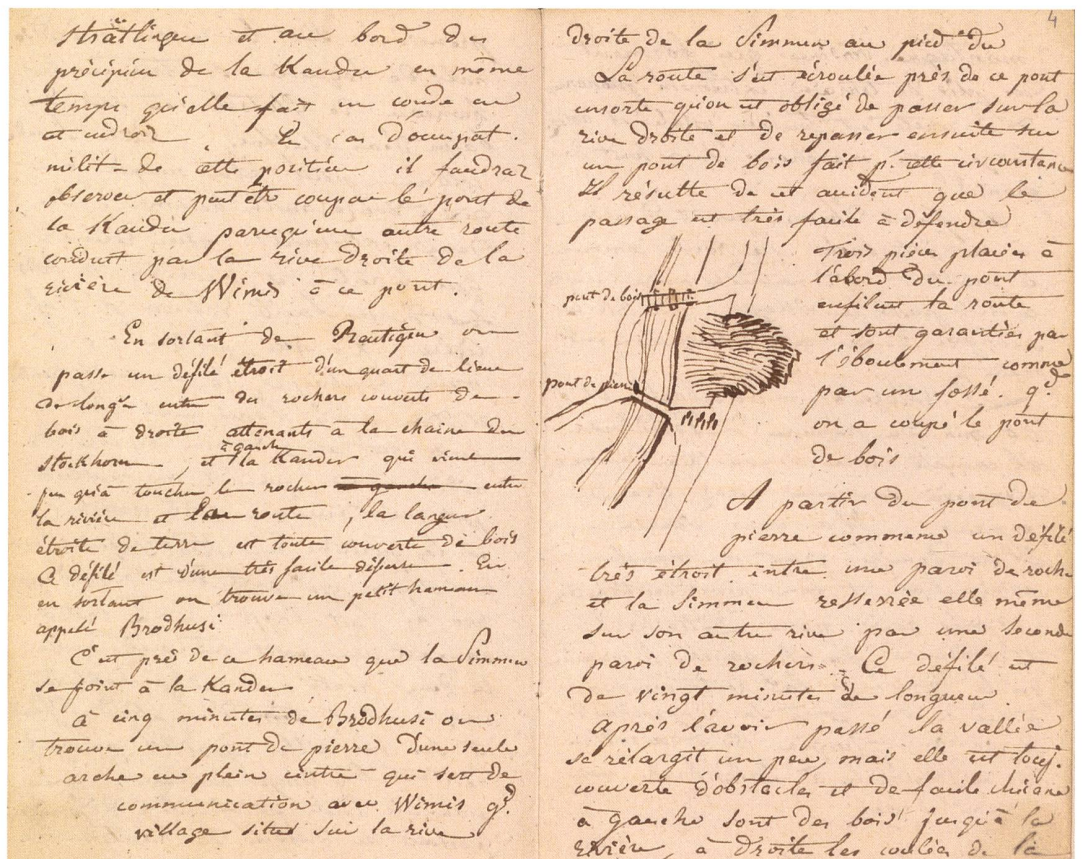 strättligen et au bord du
précipice de la Kander en même
temps qu'elle fait un coude en
cet endroit En cas d'occupat.
milit- de cette position il faudrat
observer et peut être couper le pont de
la Kander parcequ'une autre route
conduit par la rive droite de la
rivière de Wimis à ce pont.
En sortant de Reutigen on
passe un défilé étroit d'un quart de lieue
de long^r entre des rochers couverts de
bois à droite attenants à la chaine du
Stockhorn, et à gauche la Kander qui vient
jusqu'à toucher le rocher à gauche entre
la rivière et la route, la largeur
étroite de terre est toute couverte de bois
Ce défilé est d'une très facile défense. En
en sortant on trouve un petit hameau
appelé Brodhusi
C'est près de ce hameau que la Simmen
se joint à la Kander
à cinq minutes de Brodhusi on
trouve un pont de pierre d'une seule
arche en plein cintre qui sert de
communication avec Wimis g^d
village situé sur la rive
4
droite de la Simmen au pied du
La route s'est écroulée près de ce pont
ensorte qu'on est obligé de passer sur la
rive droite et de repasser ensuite sur
un pont de bois fait p^r cette circonstance
Il résulte de cet accident que le
passage est très facile à défendre
Trois pièces placées à
l'abord du pont
enfilent la route
et sont garanties par
l'éboulement comme
par un fossé. q^d
on a coupé le pont
de bois
pont de bois
pont de pierre
A partir du pont de
pierre commence un défilé
très étroit entre une paroi de roche
et la Simmen resserrée elle même
sur son autre rive par une seconde
paroi de rochers. Ce défilé est
de vingt minutes de longueur
après l'avoir passé la vallée
se rélargit un peu, mais elle est touj.
couverte d'obstacles et de facile chicane
à gauche sont des bois jusqu'à la
rivière, à droite les coulées de la